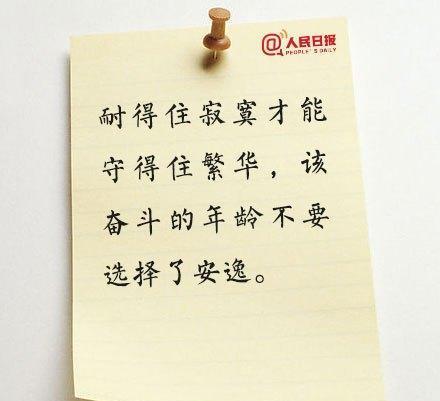 @人民日报
PEOPLE'S DAILY
耐得住寂寞才能
守得住繁华，该
奋斗的年龄不要
选择了安逸。